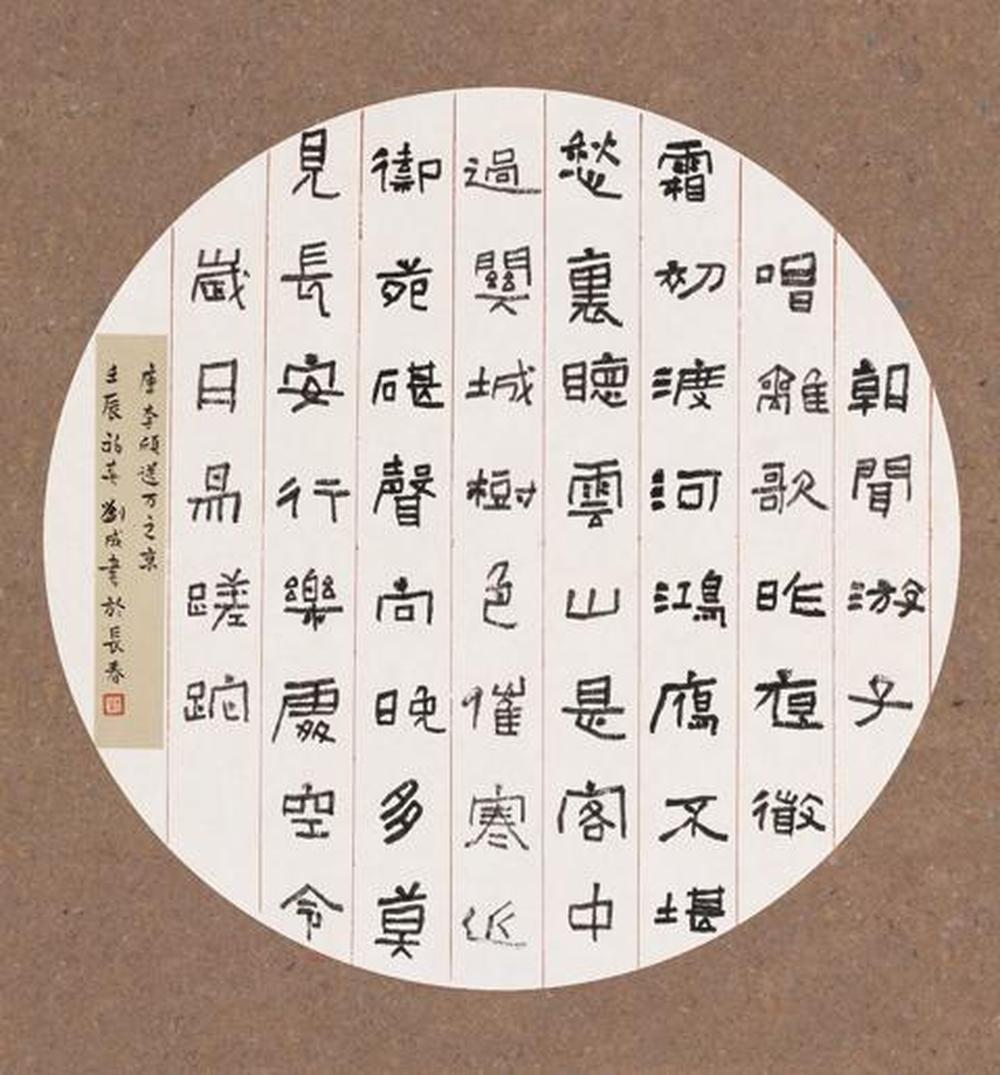 朝聞游子
唱離歌昨夜微
霜初渡河鴻鴈不堪
愁裏聽雲山是客中
過關城樹色催寒近
御苑碪聲向晚多莫
見長安行樂處空令
歲日易蹉跎
唐李頎送万之京
壬辰初春劉成書於長春